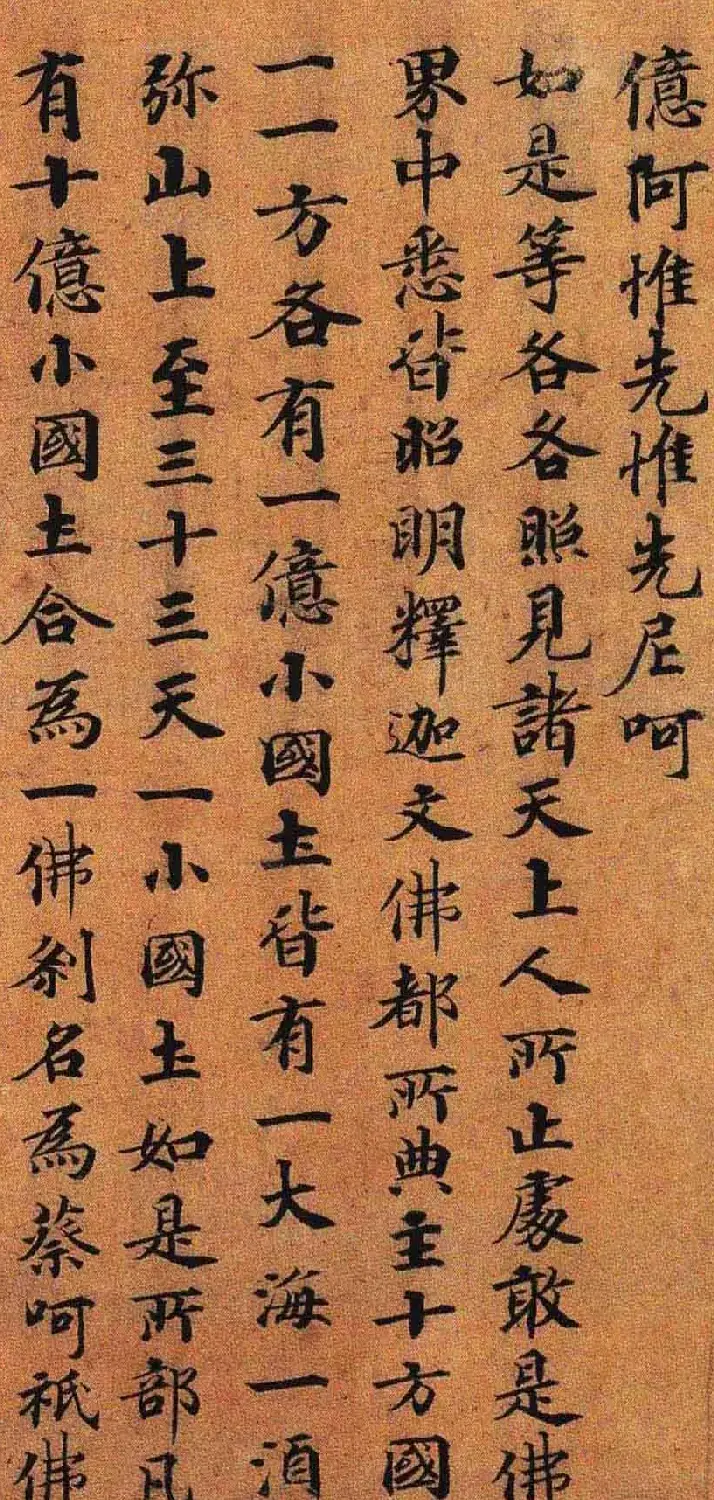 億阿惟先惟先尼呵
如是等各各照見諸天上人所止處敢是佛
界中悉皆昭明釋迦文佛都所典主十方國
一一方各有一億小國土皆有一大海一須
弥山上至三十三天一小國土如是所部凡
有十億小國土合為一佛剎名為蔡呵祇佛